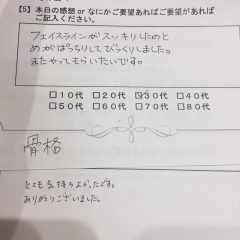 【5】本日の感想 or なにかご要望あればご要望があれば
ご記入ください。
フェイスラインがスッキリしたのと
めがぱっちりしてびっくりしました。
またやってもらいたいです。
□10代 □20代 ☑30代 □40代
□50代 □60代 □70代 □80代
骨格
とても気持ちよかったです。
ありがとうございました。